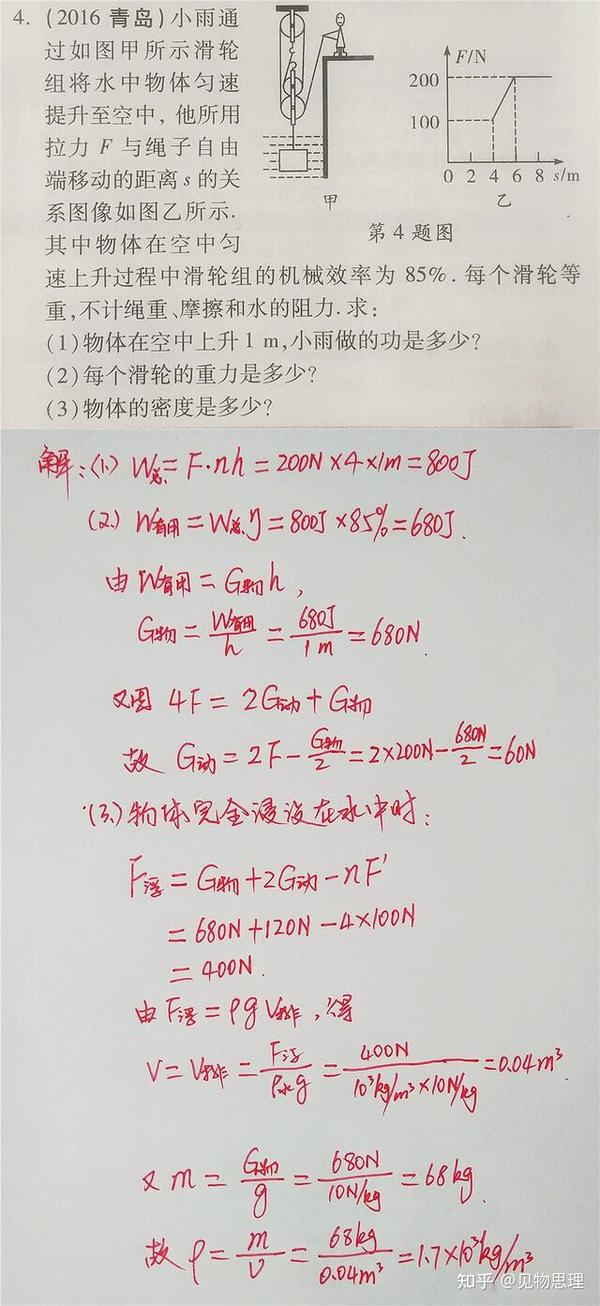 4. (2016 青岛) 小雨通
过如图甲所示滑轮
组将水中物体匀速
提升至空中, 他所用
拉力 F 与绳子自由
端移动的距离 s 的关
系图像如图乙所示.
其中物体在空中匀
速上升过程中滑轮组的机械效率为 85%. 每个滑轮等
重, 不计绳重、摩擦和水的阻力. 求:
(1) 物体在空中上升 1 m, 小雨做的功是多少?
(2) 每个滑轮的重力是多少?
(3) 物体的密度是多少?
甲
F/N
200
100
0 2 4 6 8 s/m
乙
第 4 题图
解: (1) W总 = F·nh = 200N×4×1m = 800J
(2) W有用 = W总η = 800J×85% = 680J.
由 W有用 = G物h,
G物 = W有用/h = 680J/1m = 680N.
又因 4F = 2G动 + G物
故 G动 = 2F - G物/2 = 2×200N - 680N/2 = 60N
(3) 物体完全浸没在水中时:
F浮 = G物 + 2G动 - nF′
= 680N + 120N - 4×100N
= 400N.
由 F浮 = ρgV排, 得
V = V排 = F浮/ρ水g = 400N/10³kg/m³×10N/kg = 0.04m³.
又 m = G物/g = 680N/10N/kg = 68kg.
故 ρ = m/V = 68kg/0.04m³ = 1.7×10³kg/m³
知乎 @见物思理